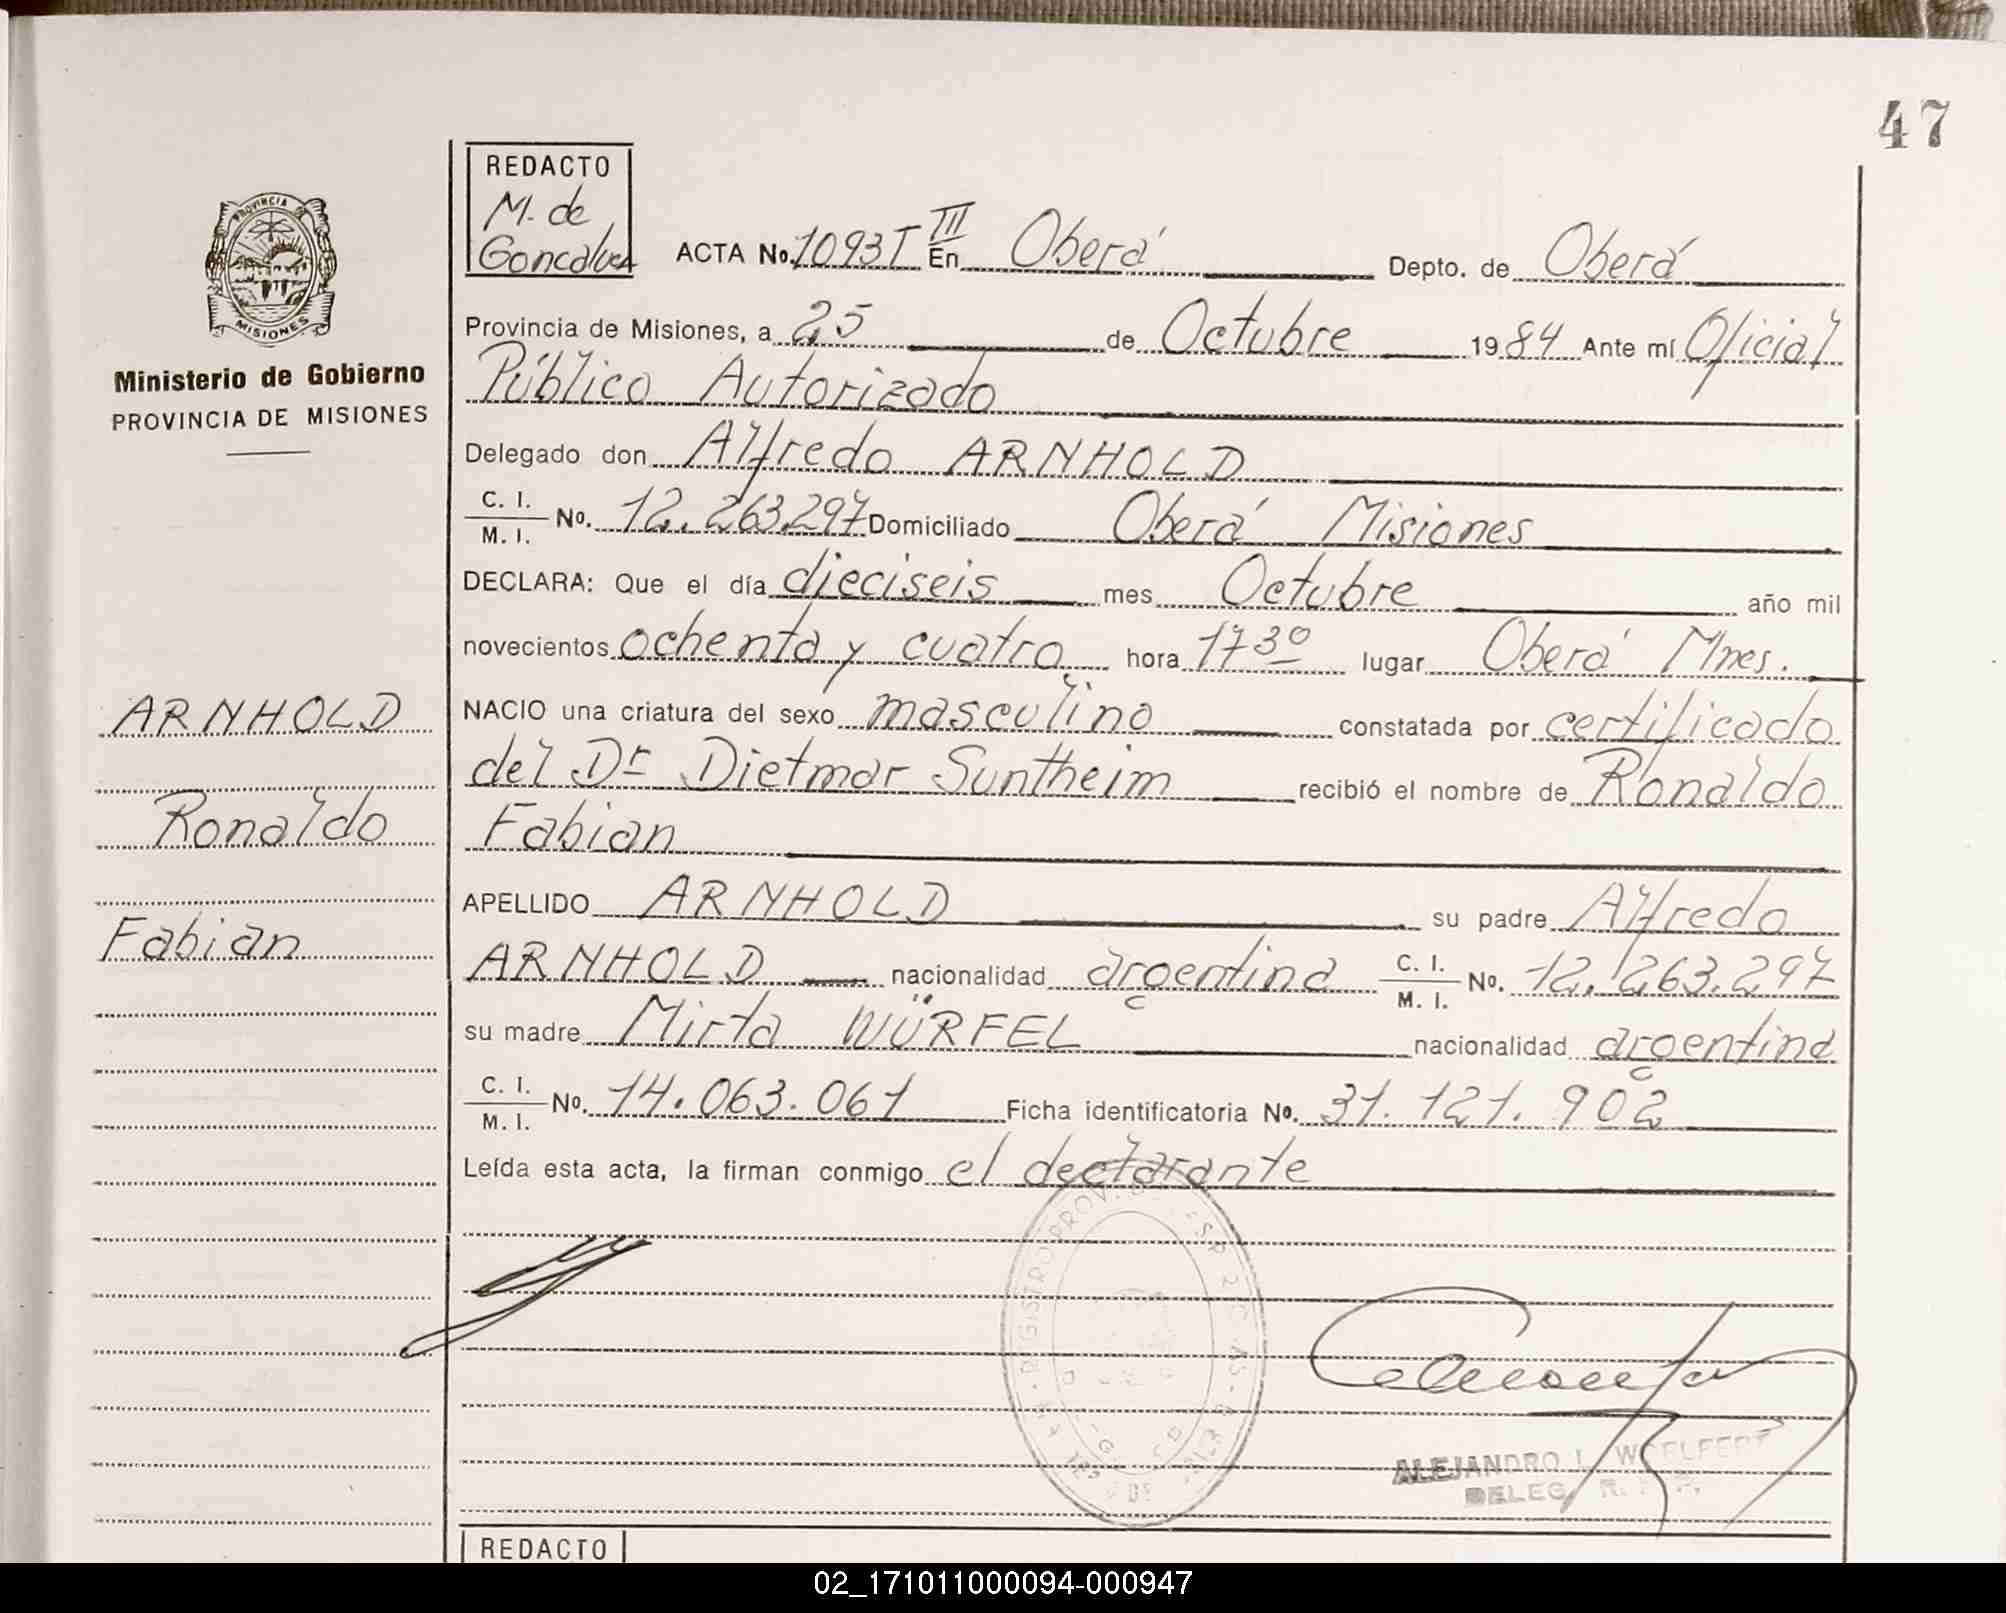 47
REDACTO
M. de
Goncalves
PROVINCIA DE
MISIONES
Ministerio de Gobierno
PROVINCIA DE MISIONES
ACTA No. 1093 T III En Oberá Depto. de Oberá
Provincia de Misiones, a 25 de Octubre 1984 Ante mí Oficial
Público Autorizado
Delegado don Alfredo ARNHOLD
C. I.
M. I. No. 12.263.297 Domiciliado Oberá Misiones
DECLARA: Que el día dieciseis mes Octubre año mil
novecientos ochenta y cuatro hora 17 30 lugar Oberá Mnes.
NACIO una criatura del sexo masculino constatada por certificado
del Dr Dietmar Suntheim recibió el nombre de Ronaldo
Fabian
APELLIDO ARNHOLD su padre Alfredo
ARNHOLD nacionalidad argentina C. I. M. I. No. 12.263.297
su madre Mirta WÜRFEL nacionalidad argentina
C. I.
M. I. No. 14.063.061 Ficha identificatoria No. 31.121.902
Leída esta acta, la firman conmigo el declarante
ARNHOLD
Ronaldo
Fabian
ALEJANDRO L. WOELFERT
DELEG.
REDACTO
02_171011000094-000947